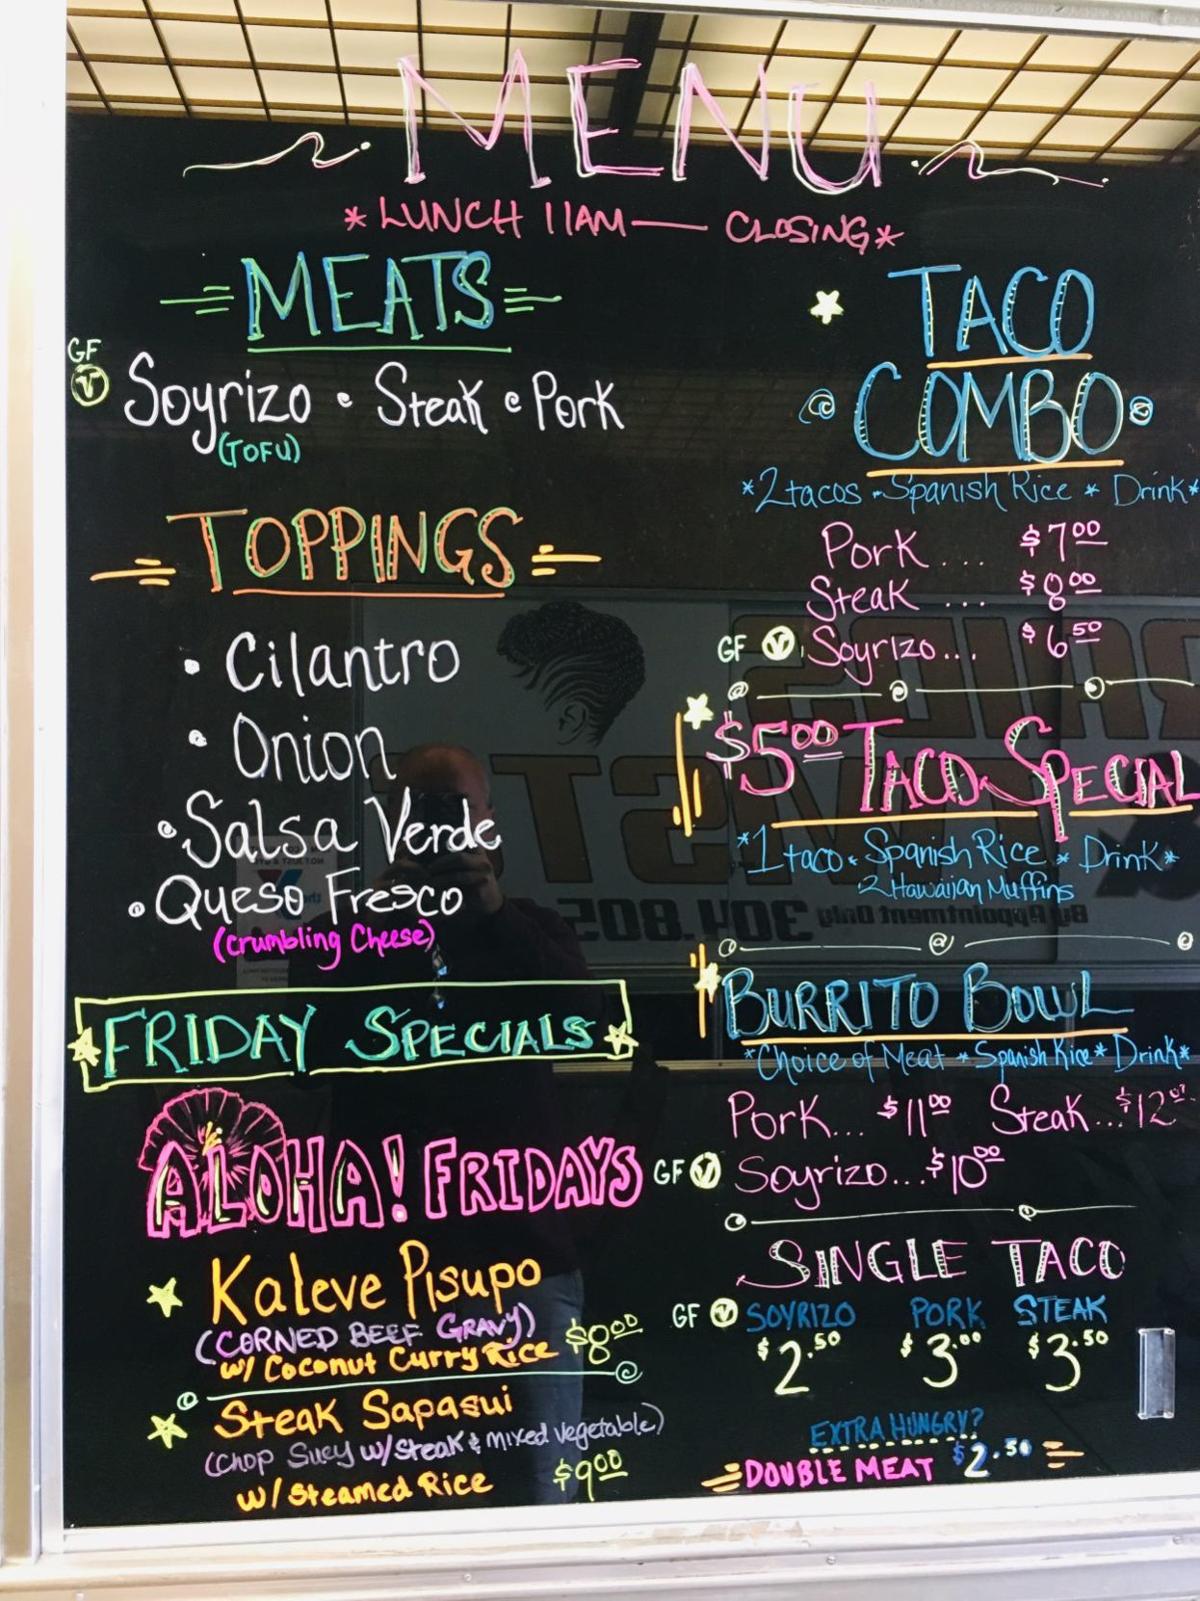 MENU
*LUNCH 11AM — CLOSING*
MEATS
GF
V Soyrizo • Steak • Pork
(TOFU)
TOPPINGS
• Cilantro
• Onion
• Salsa Verde
• Queso Fresco
(crumbling Cheese)
FRIDAY SPECIALS
ALOHA! FRIDAYS
Kaleve Pisupo
(CORNED BEEF GRAVY) $8.00
w/ Coconut Curry Rice
Steak Sapasui
(Chop Suey w/ steak & mixed vegetable)
w/ Steamed Rice $9.00
TACO
COMBO
*2 tacos • Spanish Rice * Drink*
Pork .... $7.00
Steak ... $8.00
GF V Soyrizo... $6.50
$5.00 TACO SPECIAL
*1 taco • Spanish Rice * Drink*
2 Hawaiian Muffins
BURRITO BOWL
*Choice of Meat * Spanish Rice * Drink*
Pork... $11.00 Steak...$12
GF V Soyrizo...$10.00
SINGLE TACO
GF V SOYRIZO PORK STEAK
$2.50 $3.00 $3.50
EXTRA HUNGRY?
DOUBLE MEAT $2.50
TWIST
By Appointment Only 304.805